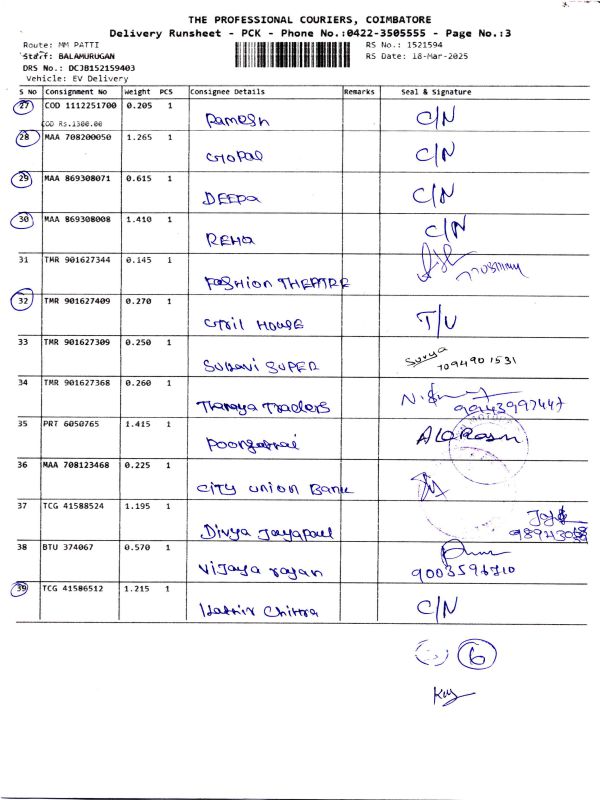 THE PROFESSIONAL COURIERS, COIMBATORE
Delivery Runsheet - PCK - Phone No.:0422-3505555 - Page No.:3
Route: MM PATTI RS No.: 1521594
Staff: BALAMURUGAN RS Date: 18-Mar-2025
DRS No.: DCJB152159403
Vehicle: EV Delivery
S No Consignment No Weight PCS Consignee Details Remarks Seal & Signature
27 COD 1112251700 0.205 1 Ramesh C/N
COD Rs.1300.00
28 MAA 708200050 1.265 1 Gopal C/N
29 MAA 869308071 0.615 1 DEEPa C/N
30 MAA 869308008 1.410 1 REHa C/N
31 TMR 901627344 0.145 1 FasHion THEATRE
32 TMR 901627409 0.270 1 Gril HOUSE T/U
33 TMR 901627309 0.250 1 SUPER Surya 7094901531
34 TMR 901627368 0.260 1 Traders
35 PRT 6050765 1.415 1
36 MAA 708123468 0.225 1 CITY UNION BANK
37 TCG 41588524 1.195 1 Divya Jayapaul
38 BTU 374067 0.570 1 Vijaya rajan 9003596710
39 TCG 41586512 1.215 1 Chitra C/N
6